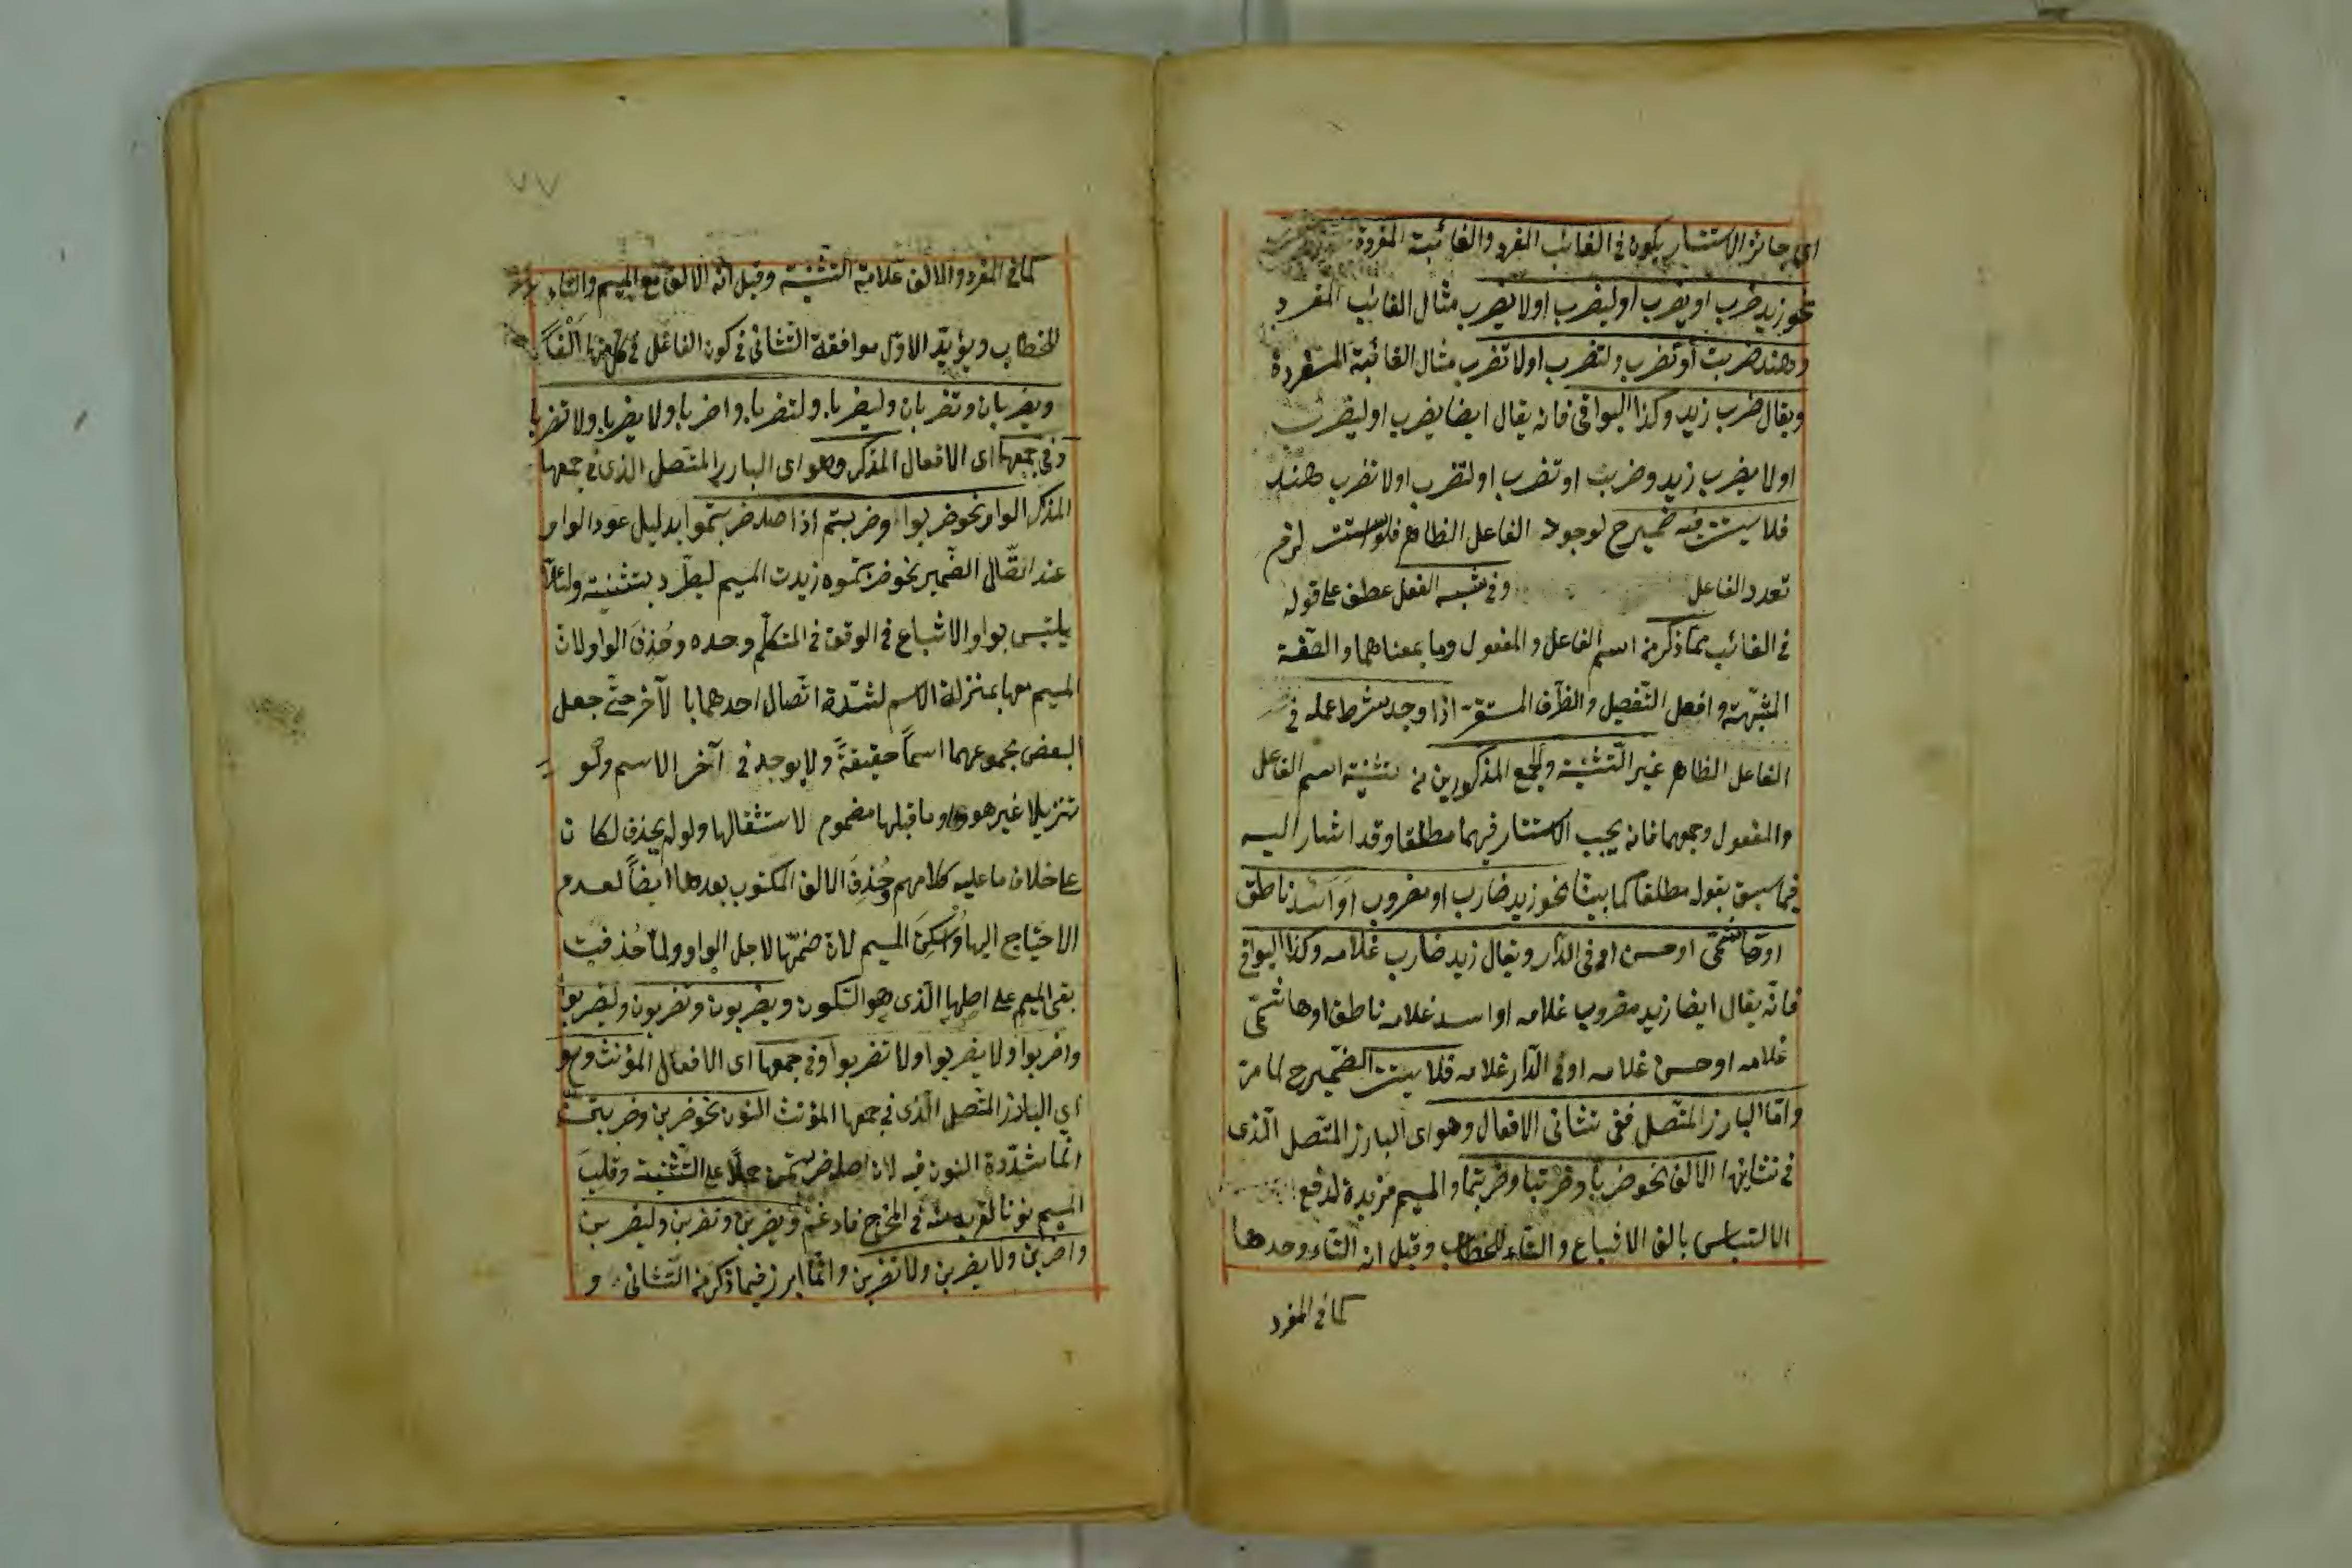 اى جائز الاستتار يكون فى الغائب المفرد والغائبة المفردة
نحو زيد ضرب او يضرب او ليضرب او لا يضرب مثال الغائب المفرد
وهند ضربت أو تضرب ولتضرب اولا تضرب مثال الغائبة المفردة
ويقال ضرب زيد وكذا البواقى فانه يقال ايضا يضرب او ليضرب
اولا يضرب زيد وضربت او تضرب او لتضرب اولا تضرب هند
فلا يستتر فيه ضمير ح لوجود الفاعل الظاهر فلو استتر لزم
تعدد الفاعل وفى شبه الفعل عطف على قوله
فى الغائب مما ذكر من اسم الفاعل والمفعول وما بمعناهما والصّفة
المشبّهة وافعل التّفضيل والظّرف المستقرّ اذا وجد شرط عمله فى
الفاعل الظاهر غير التّثنية والجمع المذكورين من تثنية اسم الفاعل
والمفعول وجمعهما فانه يجب الاستتار فيهما مطلقا وقد اشار اليه
فيما سبق بقوله مطلقا كما بينّا نحو زيد ضارب او مضروب او اسد ناطق
او هاشمىّ او حسن او فى الدّار ويقال زيد ضارب غلامه وكذا البواقى
فانّه يقال ايضا زيد مضروب غلامه او اسد غلامه ناطق او هاشمىّ
غلامه او حسن غلامه او فى الدّار غلامه فلا يستتر الضّمير ح لما مرّ
وامّا البارز المتّصل ففى تثانى الافعال وهو اى البارز المتّصل الّذى
فى تثانيها الالف نحو ضربا وضربتا وضربتما والميم مزيدة لدفع
الالتباس بالف الاشباع والتاء للخطاب وقيل ان التّاء وحدها
كما فى المفرد
٧٧
كما فى المفرد والالف علامة التّثنية وقيل انه الالف مع الميم والتاء
للخطاب ويؤيّد الاوّل موافقة التّثانى فى كون الفاعل فى كل منها الفًا
ويضربان وتضربان وليضربا ولتضربا واضربا ولا يضربا ولا تضربا
وفى جمعها اى الافعال المذكر وهو اى البارز المتّصل الذى فى جمعها
المذكر الواو نحو ضربوا وضربتم اذ اصله ضربتموا بدليل عود الواو
عند اتّصال الضّمير نحو ضربتموه زيدت الميم ليطّرد بتثنيته ولئلّا
يلتبس بواو الاشباع فى الوقف فى المتكلّم وحده وحُذِفَ الواو لان
الميم معها بمنزلة الاسم لشدّة اتّصال احدهما با لآخر حتّى جعل
البعض مجموعهما اسماً حقيقةً ولا يوجد فى آخر الاسم ولو
تنزيلا غير هو واو ما قبلها مضموم لاستثقالها ولو لم يحذف لكا ن
على خلاف ما عليه كلامهم وحُذِفَ الالف المكتوب بعدها ايضاً لعدم
الاحتياج اليها واُسْكِنَ الميم لان ضمّها لاجل الواو ولمّا حُذفت
بقى الميم على اصلها الّذى هو السّكون ويضربون وتضربون وليضربوا
واضربوا ولا يضربوا ولا تضربوا وفى جمعها اى الافعال المؤنث وهو
اى البارز المتّصل الّذى فى جمعها المؤنث النون نحو ضربن وضربتنّ
انّما شدّدة النون فيه لان اصله ضربتمن حملًا على التّثنية وقلبت
الميم نونا لقربه منه فى المخرج فادغم ويضربن وتضربن وليضربن
واضربن ولا يضربن ولا تضربن وانّما ابرز فيما ذكر من التّثانى و